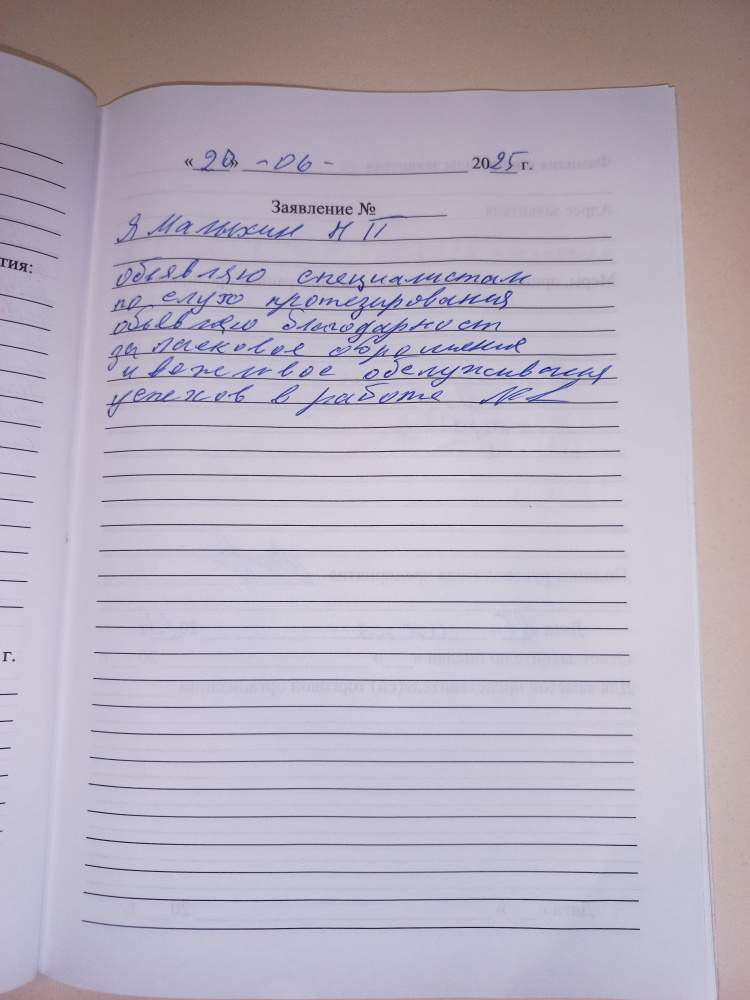 «20» -06- 2025 г.
Заявление №
Я Малыхин Н П
объявляю специалистам
по слухо протезирования
объявляю благодарност
за ласковое оброшения
и вожливое обслуживания
успехов в работе
тия:
г.